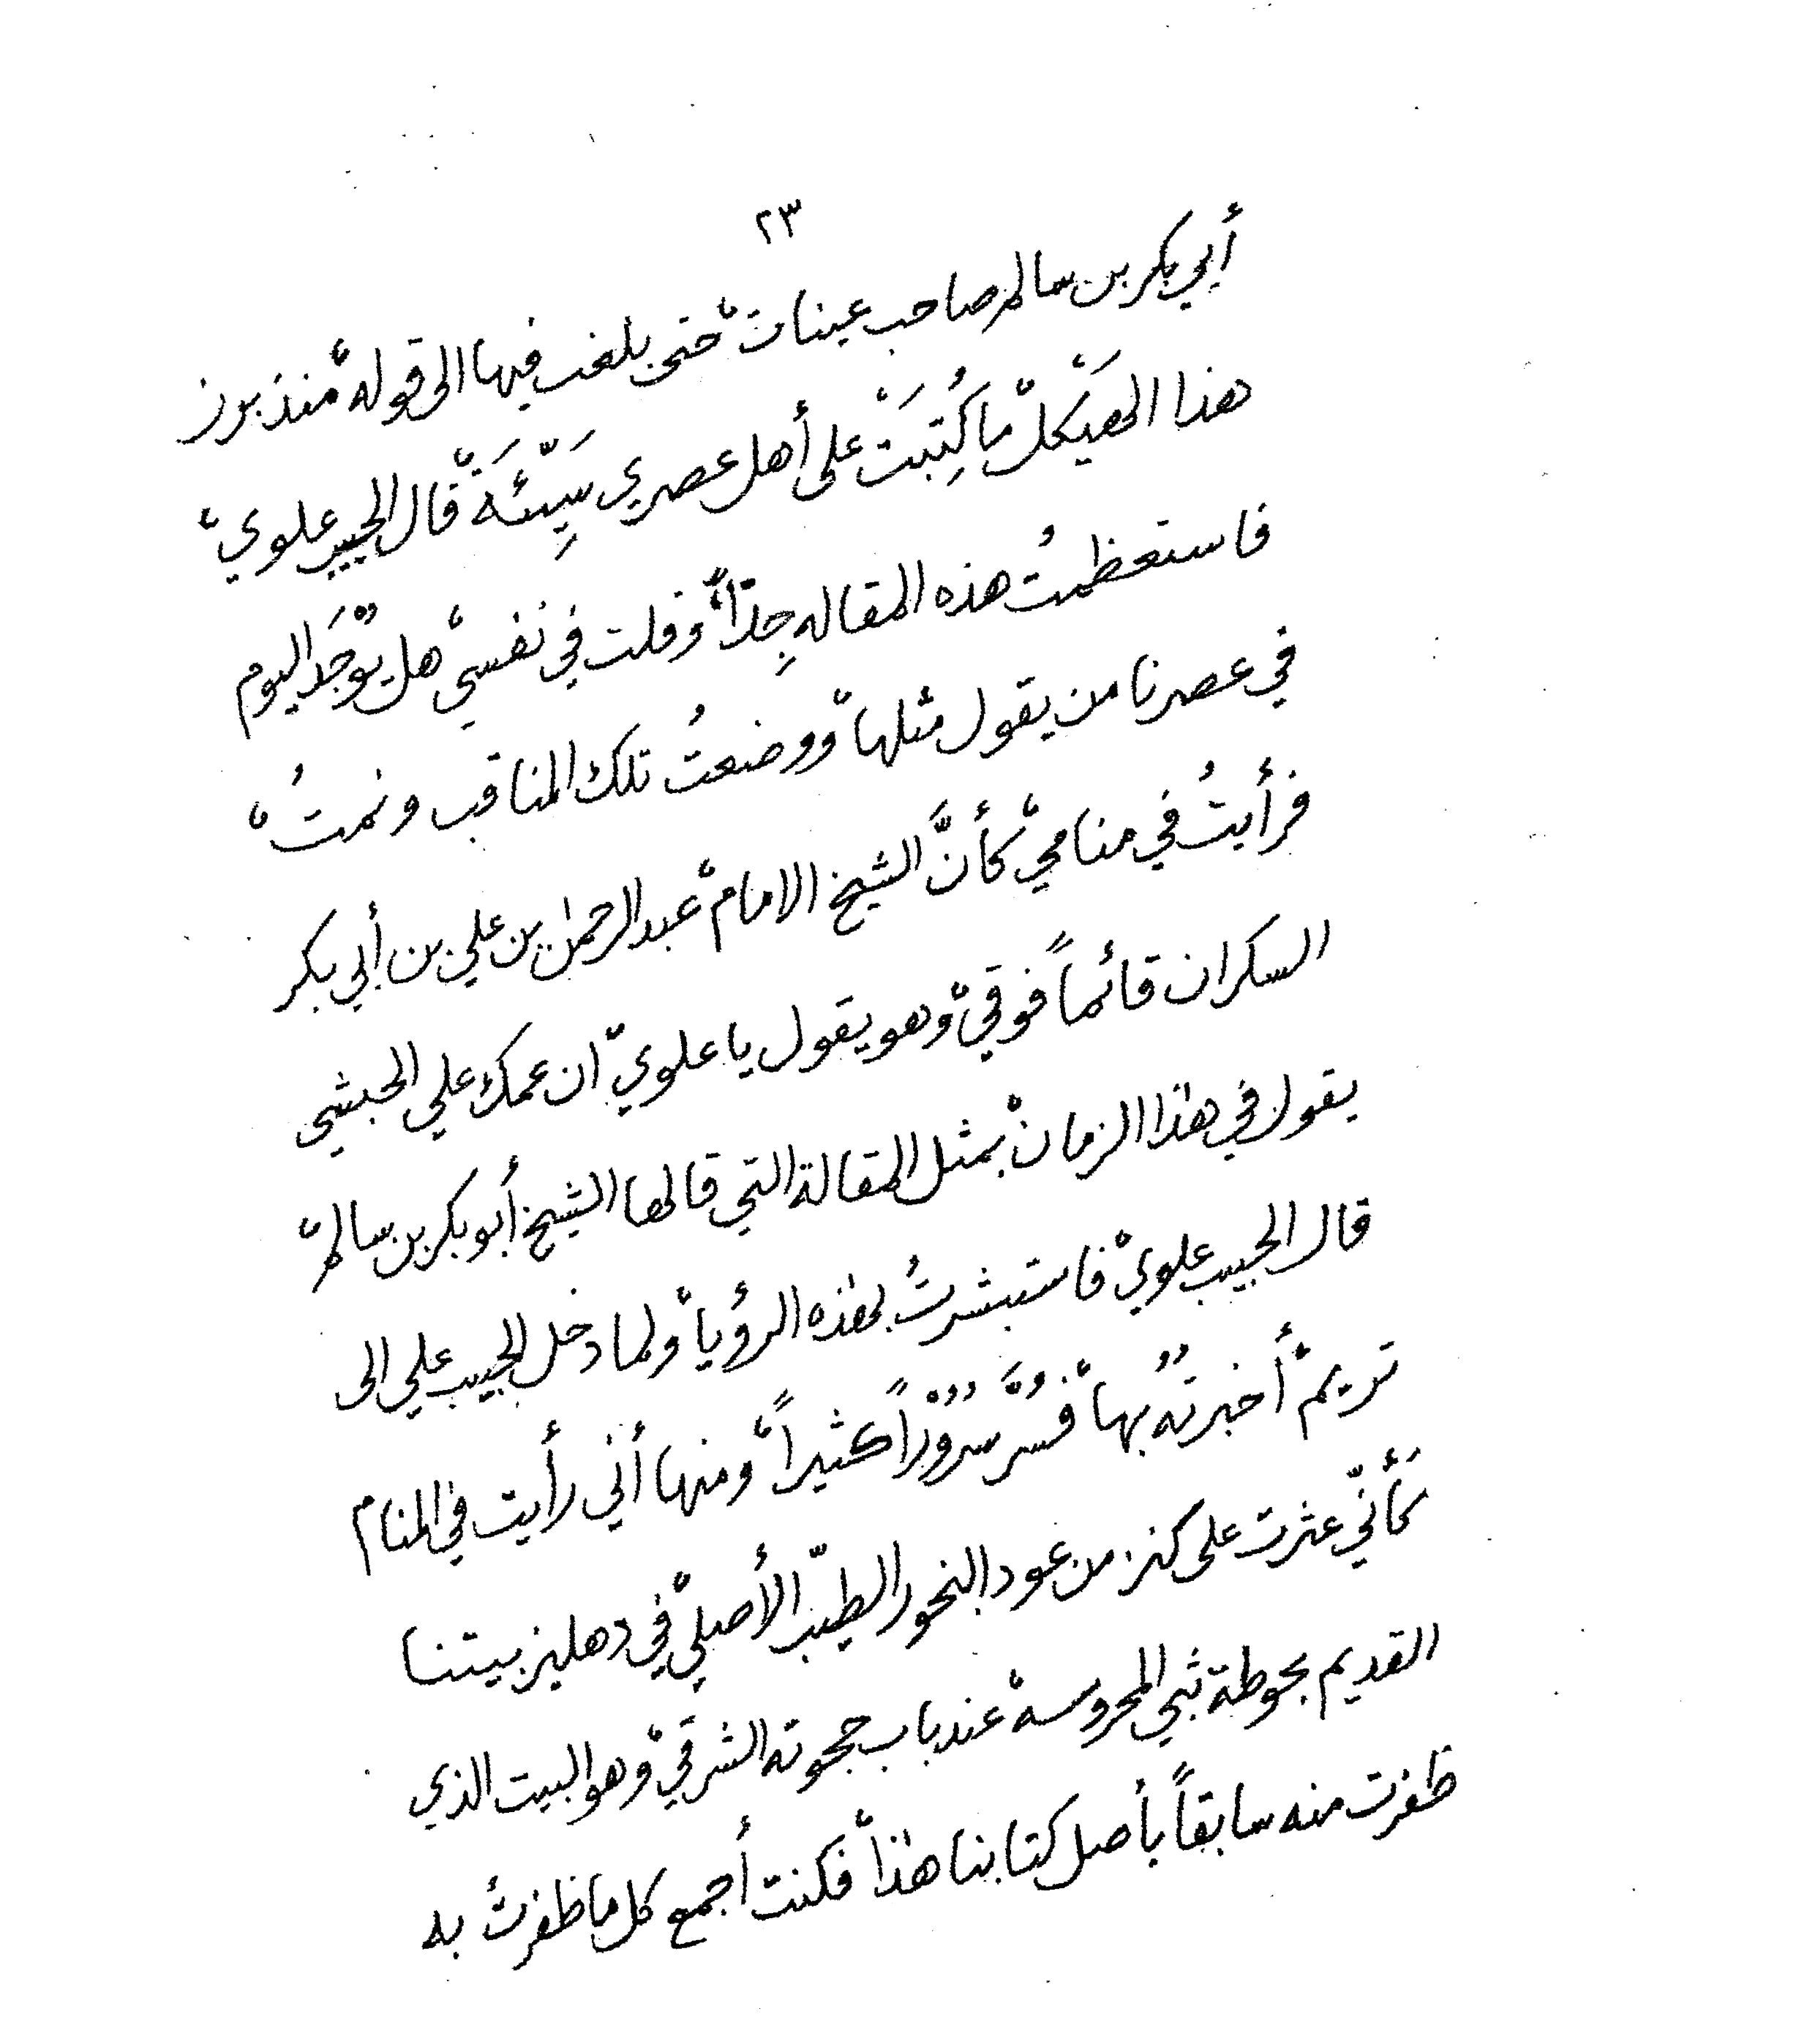 ٢٣
أبي بكر بن سالم صاحب عينات، حتى بلغت فيها الى قوله، منذ برز
هذا الهَيْكلْ، مَا كُتِبَتْ على أهل عصري سَيِّئَة، قال الحبيب علوي،
فاستعظمتُ هذه المقاله جِدّاً، وقلت في نفسي، هل يُوْجَد اليوم
في عصرنا من يقول مثلها، ووضعتُ تلك المناقب ونمتُ،
فرأيتُ في منامي، كأنَّ الشيخ الامام، عبدالرحمٰن بن علي بن أبي بكر
السكران قائماً فوقي، وهو يقول يا علوي، ان عمك علي الحبشي
يقول في هٰذا الزمان، بمثل المقالة التي قالها الشيخ أبوبكر بن سالم،
قال الحبيب علوي، فاستبشرتُ بهٰذه الرؤيا، ولما دخل الحبيب علي الى
تريم، أخبرتُهُ بها، فَسُرَّ سُرُوْرًا كثيراً، ومنها أني رأيت في المنام
كَأَنّي عثرت على كنز من عود البخور الطيّب الأصلي، في دهليز بيتنا
القديم بحوطة ثبي المحروسة، عند باب جحوته الشرقي، وهو البيت الذي
ظفرت منه سابقاً بأصل كتابنا هٰذا، فكنت أجمع كل ما ظفرتُ به